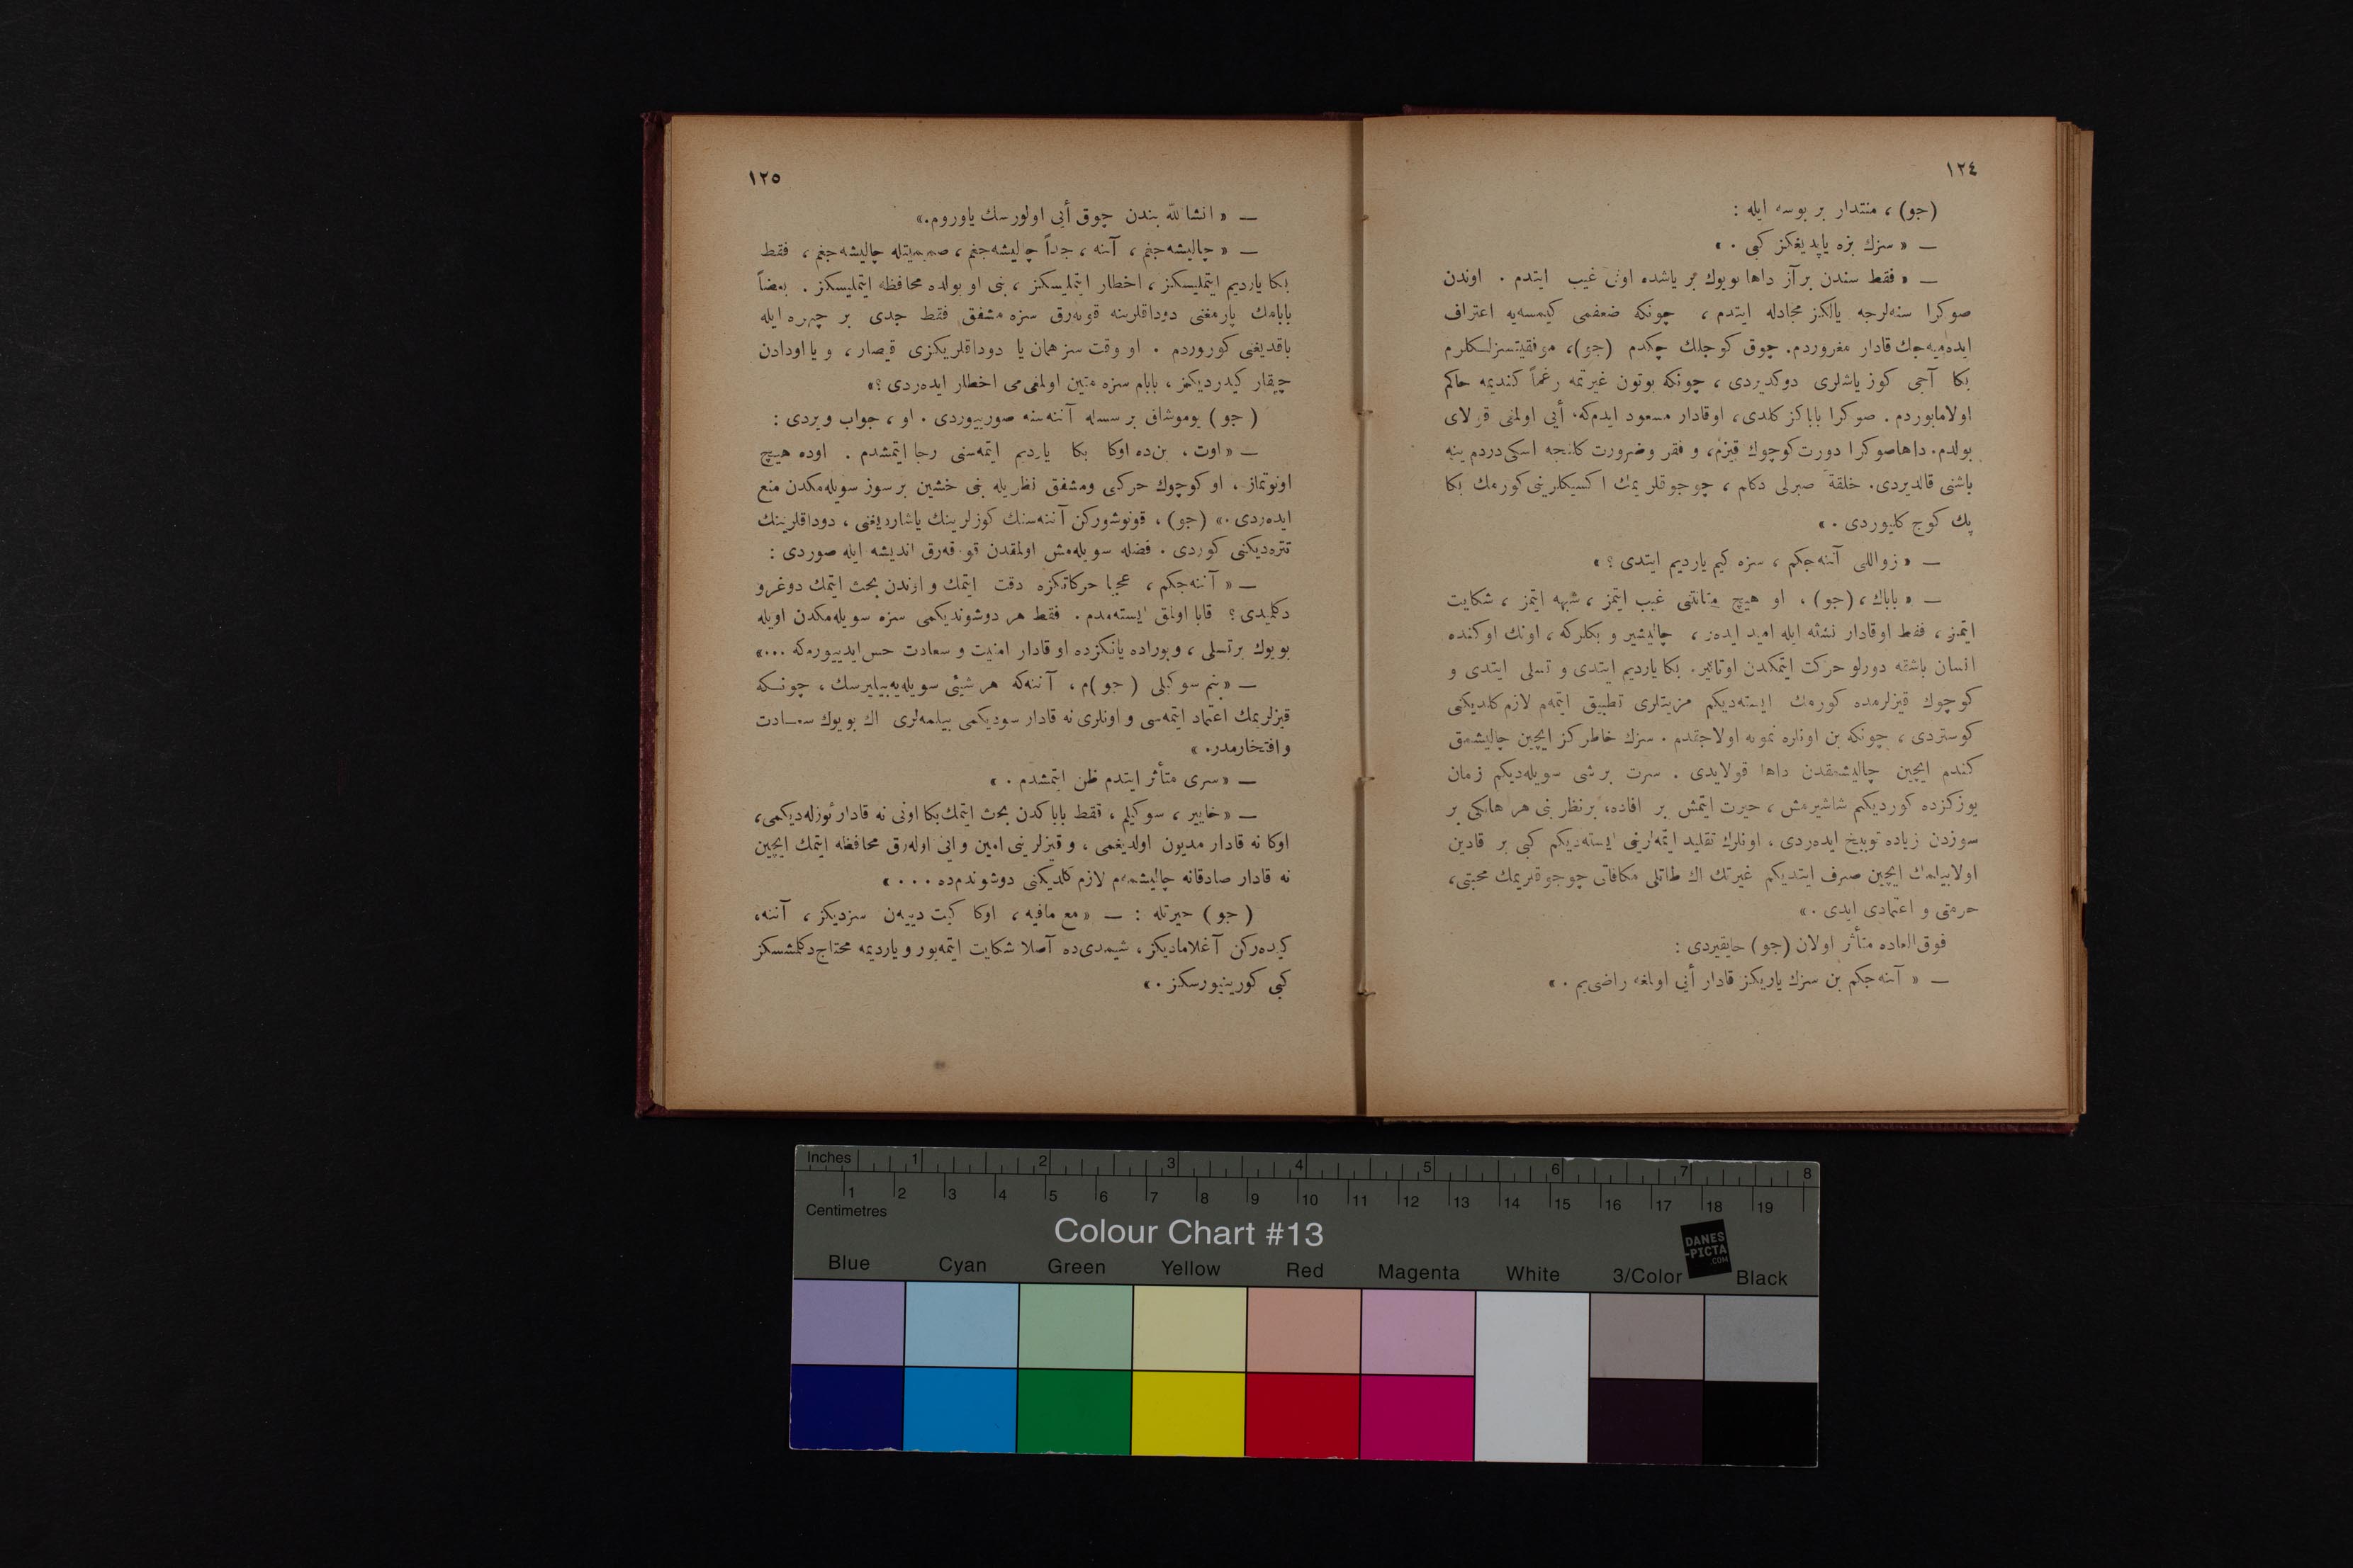 ١٢٤
(جو) ، منتدار بر بوسه ایله :
— « سزك بزه یاپدیغكز كبی . »
— « فقط سندن بر آز داها بویوك بر یاشده اونی غیب ایتدم . اوندن
صوكرا سنه‌لرجه یالكز مجادله ایتدم ، چونكه ضعفمی كیمسه‌یه اعتراف
ایده‌میه‌جك قادار مغروردم. چوق كوجلك چكدم (جو)، موفقیتسزلكلرم
بكا آجی كوز یاشلری دوكدیردی ، چونكه بوتون غیرتمه رغماً كندیمه حاكم
اولامایوردم . صوكرا باباكز كلدی، اوقادار مسعود ایدم‌كه. أیی اولمغی قولای
بولدم. داهاصوكرا دورت كوچوك قیزم، و فقر وضرورت كلنجه اسكی‌دردم ینه
باشنی قالدیردی. خلقةً صبرلی دكلم ، چوجوقلریمك اكسیكلرینی كورمك بكا
پك كوج كلیوردی . »
— « زواللی آننه‌جكم ، سزه كیم یاردیم ایتدی ؟ »
— « باباك ، (جو) . او هیچ متانتنی غیب ایتمز ، شبهه ایتمز ، شكایت
ایتمز ، فقط اوقادار نشئه ایله امید ایدەر ، چالیشیر و بكلركه ، اونك اوكنده
انسان باشقه دورلو حركت ایتمكدن اوتانیر. بكا یاردیم ایتدی و تسلی ایتدی و
كوچوك قیزلرمده كورمك ایسته‌دیكم مزیتلری تطبیق ایتمەم لازم كلدیكنی
كوستردی ، چونكه بن اونلره نمونه اولاجقدم . سزك خاطركز ایچین چالیشمق
كندم ایچین چالیشمقدن داها قولایدی . سرت بر شی سویله‌دیكم زمان
یوزكزده كوردیكم شاشیرمش ، حیرت ایتمش بر افاده، برنظر بنی هر هانكی بر
سوزدن زیاده توبیخ ایدەردی ، اونلرك تقلید ایتمەلرینی ایسته‌دیكم كبی بر قادین
اولابیلمك ایچین صرف ایتدیكم غیرتك اك طاتلی مكافاتی چوجوقلریمك محبتی،
حرمتی و اعتمادی ایدی . »
فوق‌العاده متأثر اولان (جو) حایقیردی :
— « آننه‌جكم بن سزك یاریكز قادار أیی اولمغه راضی‌یم . »
١٢٥
— « انشاالله بندن چوق أیی اولورسك یاوروم.»
— « چالیشه‌جغم ، آننه ، جداً چالیشه‌جغم ، صمیمیتله چالیشه‌جغم ، فقط
بكا یاردیم ایتملیسكز ، اخطار ایتملیسكز ، بنی او یولده محافظه ایتملیسكز . بعضاً
بابامك پارمغنی دوداقلرینه قویەرق سزه مشفق فقط جدی بر چهره ایله
باقدیغنی كوروردم . او وقت سز همان یا دوداقلریكزی قیصار ، و یا اودادن
چیقار كیدردیكز ، بابام سزه متین اولمغی‌می اخطار ایدەردی ؟»
( جو ) یوموشاق بر سسله آننه‌سنه صورییوردی . او ، جواب ویردی :
— « اوت . بن‌ده اوكا بكا یاردیم ایتمەسنی رجا ایتمشدم . اوده هیچ
اونوتماز ، او كوچوك حركی ومشفق نظریله بنی خشین بر سوز سویله‌مكدن منع
ایدەردی .» (جو) ، قونوشوركن آننه‌سنك كوزلرینك یاشاردیغنی ، دوداقلرینك
تتره‌دیكنی كوردی . فضله سویله‌مش اولمقدن قورقەرق اندیشه ایله صوردی :
— « آننه‌جكم ، عجبا حركاتكزه دقت ایتمك و اوندن بحث ایتمك دوغرو
دكلمیدی ؟ قابا اولمق ایسته‌مدم . فقط هر دوشوندیكمی سزه سویله‌مكدن اویله
بویوك برتسلی ، وبوراده یانكزده اوقادار امنیت و سعادت حس‌ایدییورم‌كه ...»
— « بنم سوكیلی ( جو )م ، آننه‌كه هر شیئی سویله‌یه‌بیلیرسك ، چونكه
قیزلریمك اعتماد ایتمەسی و اونلری نه قادار سودیكمی بیلمەلری اك بویوك سعادت
وافتخارمدر. »
— « سزی متأثر ایتدم ظن ایتمشدم . »
— « خایر ، سوكیلم ، فقط باباكدن بحث ایتمك‌بكا اونی نه قادار ئوزله‌دیكمی،
اوكا نه قادار مدیون اولدیغمی ، و قیزلرینی امین و ایی اولەرق محافظه ایتمك ایچین
نه قادار صادقانه چالیشمەم لازم كلدیكنی دوشوندم‌ده ... »
( جو ) حیرتله : — « مع مافیه ، اوكا كیت دییه‌ن سزدیكز ، آننه،
كیدەركن آغلامادیكز ، شیمدی‌ده آصلا شكایت ایتمه‌یور و یاردیمه محتاج‌دكلمشسكز
كبی كورینیورسكز . »
Inches 1 2 3 4 5 6 7 8
1 2 3 4 5 6 7 8 9 10 11 12 13 14 15 16 17 18 19
Centimetres
Colour Chart #13
DANES
-PICTA
.COM
Blue Cyan Green Yellow Red Magenta White 3/Color Black